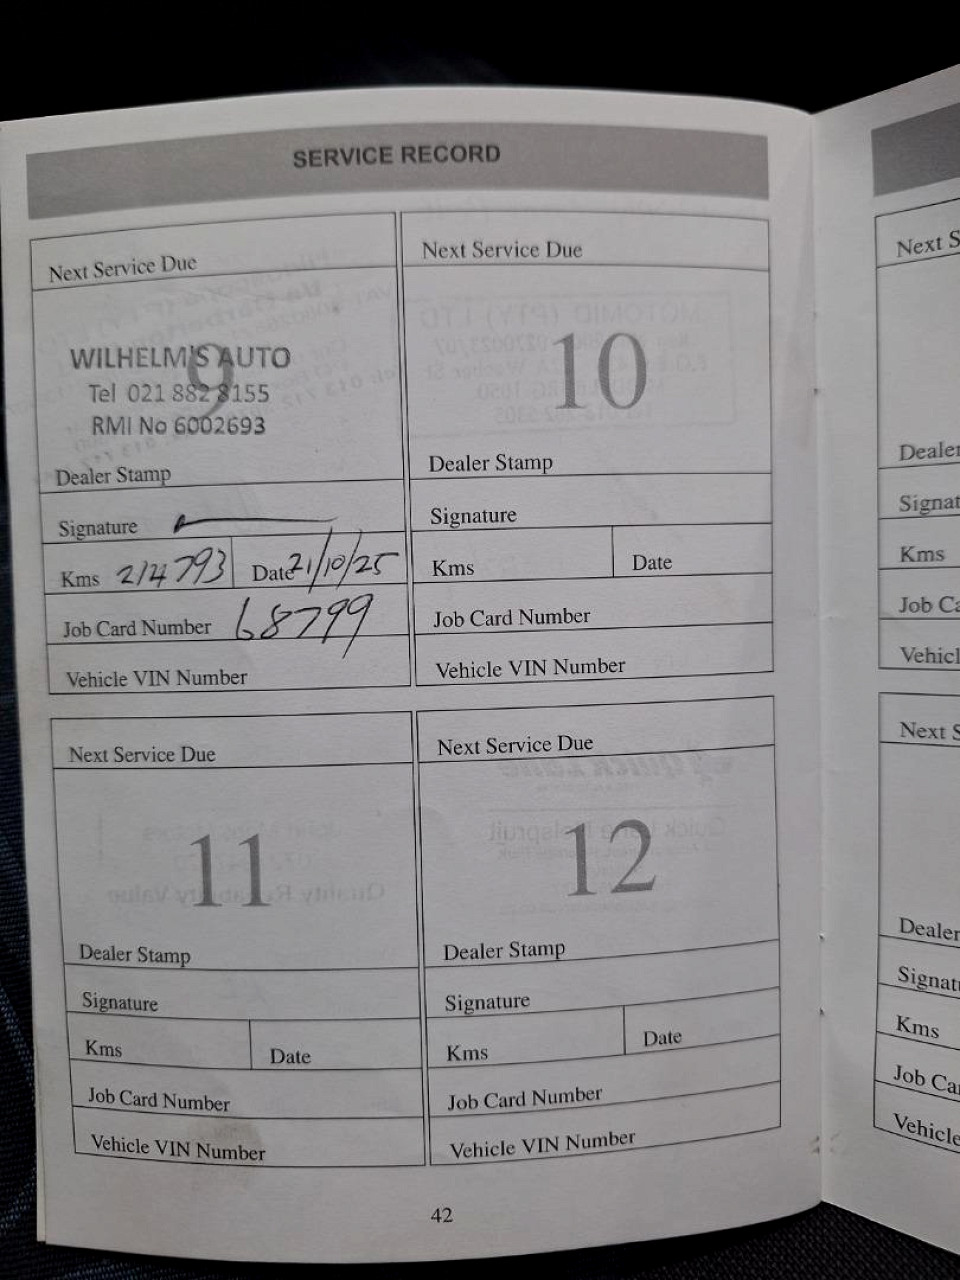 SERVICE RECORD
Next Service Due
9
WILHELM'S AUTO
Tel 021 882 8155
RMI No 6002693
Dealer Stamp
Signature
Kms 214793 Date 21/10/25
Job Card Number 68799
Vehicle VIN Number
Next Service Due
10
Dealer Stamp
Signature
Kms Date
Job Card Number
Vehicle VIN Number
Next Service Due
11
Dealer Stamp
Signature
Kms Date
Job Card Number
Vehicle VIN Number
Next Service Due
12
Dealer Stamp
Signature
Kms Date
Job Card Number
Vehicle VIN Number
42
Next S
Dealer
Signat
Kms
Job Ca
Vehicl
Next S
Dealer
Signat
Kms
Job Ca
Vehicle